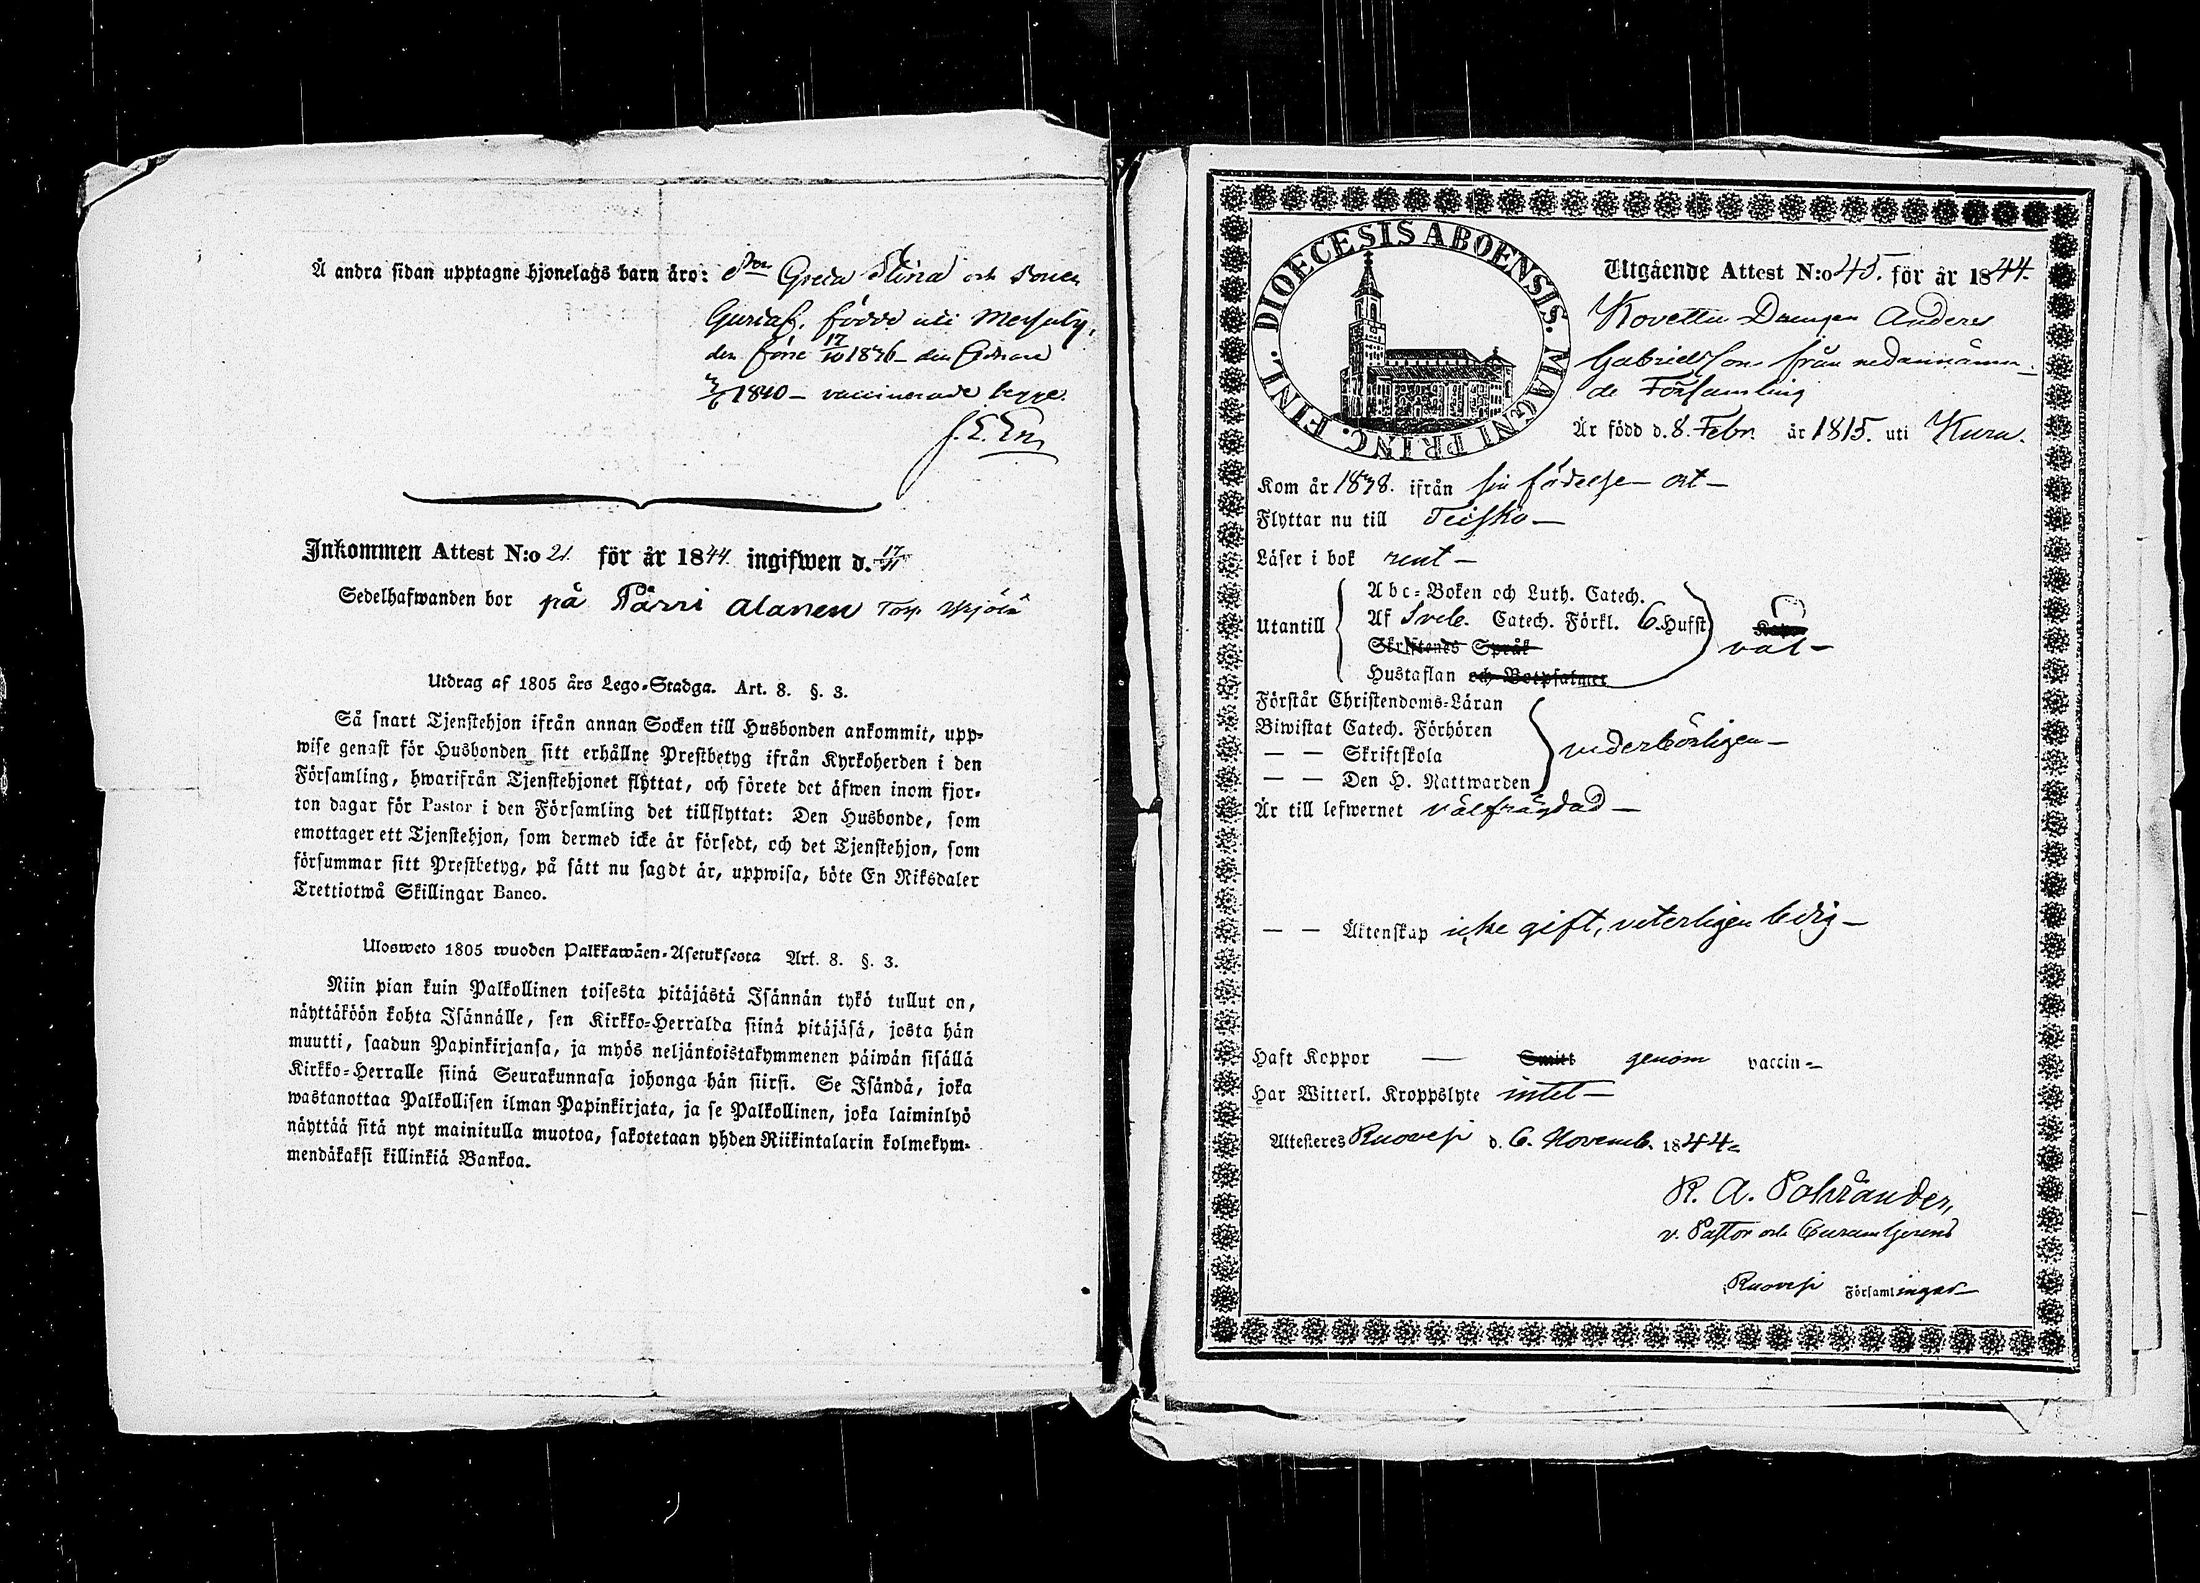 Å andra sidan upptagne hjonelags barn äro: Greta Stina och Sonen
Gustaf, födde uti
den förre 17/10 1836 – den sednare
1840 – vaccinerade begge.
Inkommen Attest N:o 21 för år 1844. ingifwen d. 17/11
Sedelhafwanden bor på Pärri Alanen Torp
Utdrag af 1805 års Lego-Stadga. Art. 8. §. 3.
Så snart Tjenstehjon ifrån annan Socken till Husbonden ankommit, upp-
wise genast för Husbonden sitt erhållne Prestbetyg ifrån Kyrkoherden i den
Församling, hwarifrån Tjenstehjonet flyttat, och förete det äfwen inom fjor-
ton dagar för Pastor i den Församling det tillflyttat: Den Husbonde, som
emottager ett Tjenstehjon, som dermed icke är försedt, och det Tjenstehjon, som
försummar sitt Prestbetyg, på sätt nu sagdt är, uppwisa, böte En Riksdaler
Trettiotwå Skillingar Banco.
Ulosweto 1805 wuoden Palkkawäen-Asetuksesta Art. 8. §. 3.
Niin pian kuin Palkollinen toisesta pitäjästä Isännän tykö tullut on,
näyttäköön kohta Isännälle, sen Kirkko-Herralda siinä pitäjäsä, josta hän
muutti, saadun Papinkirjansa, ja myös neljäntoistakymmenen päiwän sisällä
Kirkko-Herralle siinä Seurakunnasa johonga hän siirsi. Se Isändä, joka
wastanottaa Palkollisen ilman Papinkirjata, ja se Palkollinen, joka laiminlyö
näyttää sitä nyt mainitulla muotoa, sakotetaan yhden Riikintalarin kolmekym-
mendäkaksi killinkiä Bankoa.
DIOECESIS ABOENSIS. MAGNI PRINC. FINL.
Utgående Attest N:o 45. för år 1844.
Drengen Anders
Gabrielsson från nedannämn-
de Församling
Är född d. 8. Febr. år 1815. uti Kuru.
Kom år 1838. ifrån sin födelse-ort –
Flyttar nu till Teisko –
Läser i bok rent –
Utantill
Abc-Boken och Luth. Catech.
Af Sveb. Catech. Förkl. 6. Hufst
Skriftenes Språk
Hustaflan och Botpsalmer
väl –
Förstår Christendoms-Läran
Biwistat Catech. Förhören
— — Skriftskola
— — Den H. Nattwarden
vederbörligen –
Är till lefwernet välfrägdad –
— — Äktenskap icke gift, veterligen ledig –
Haft Koppor — Smitt genom vaccin –
Har Witterl. Kroppslyte intet –
Attesteres Ruovesi d. 6. Novemb. 1844
K. A. Pohlrander,
v. Pastor och Curam Gerens
Ruovesi Församlingar